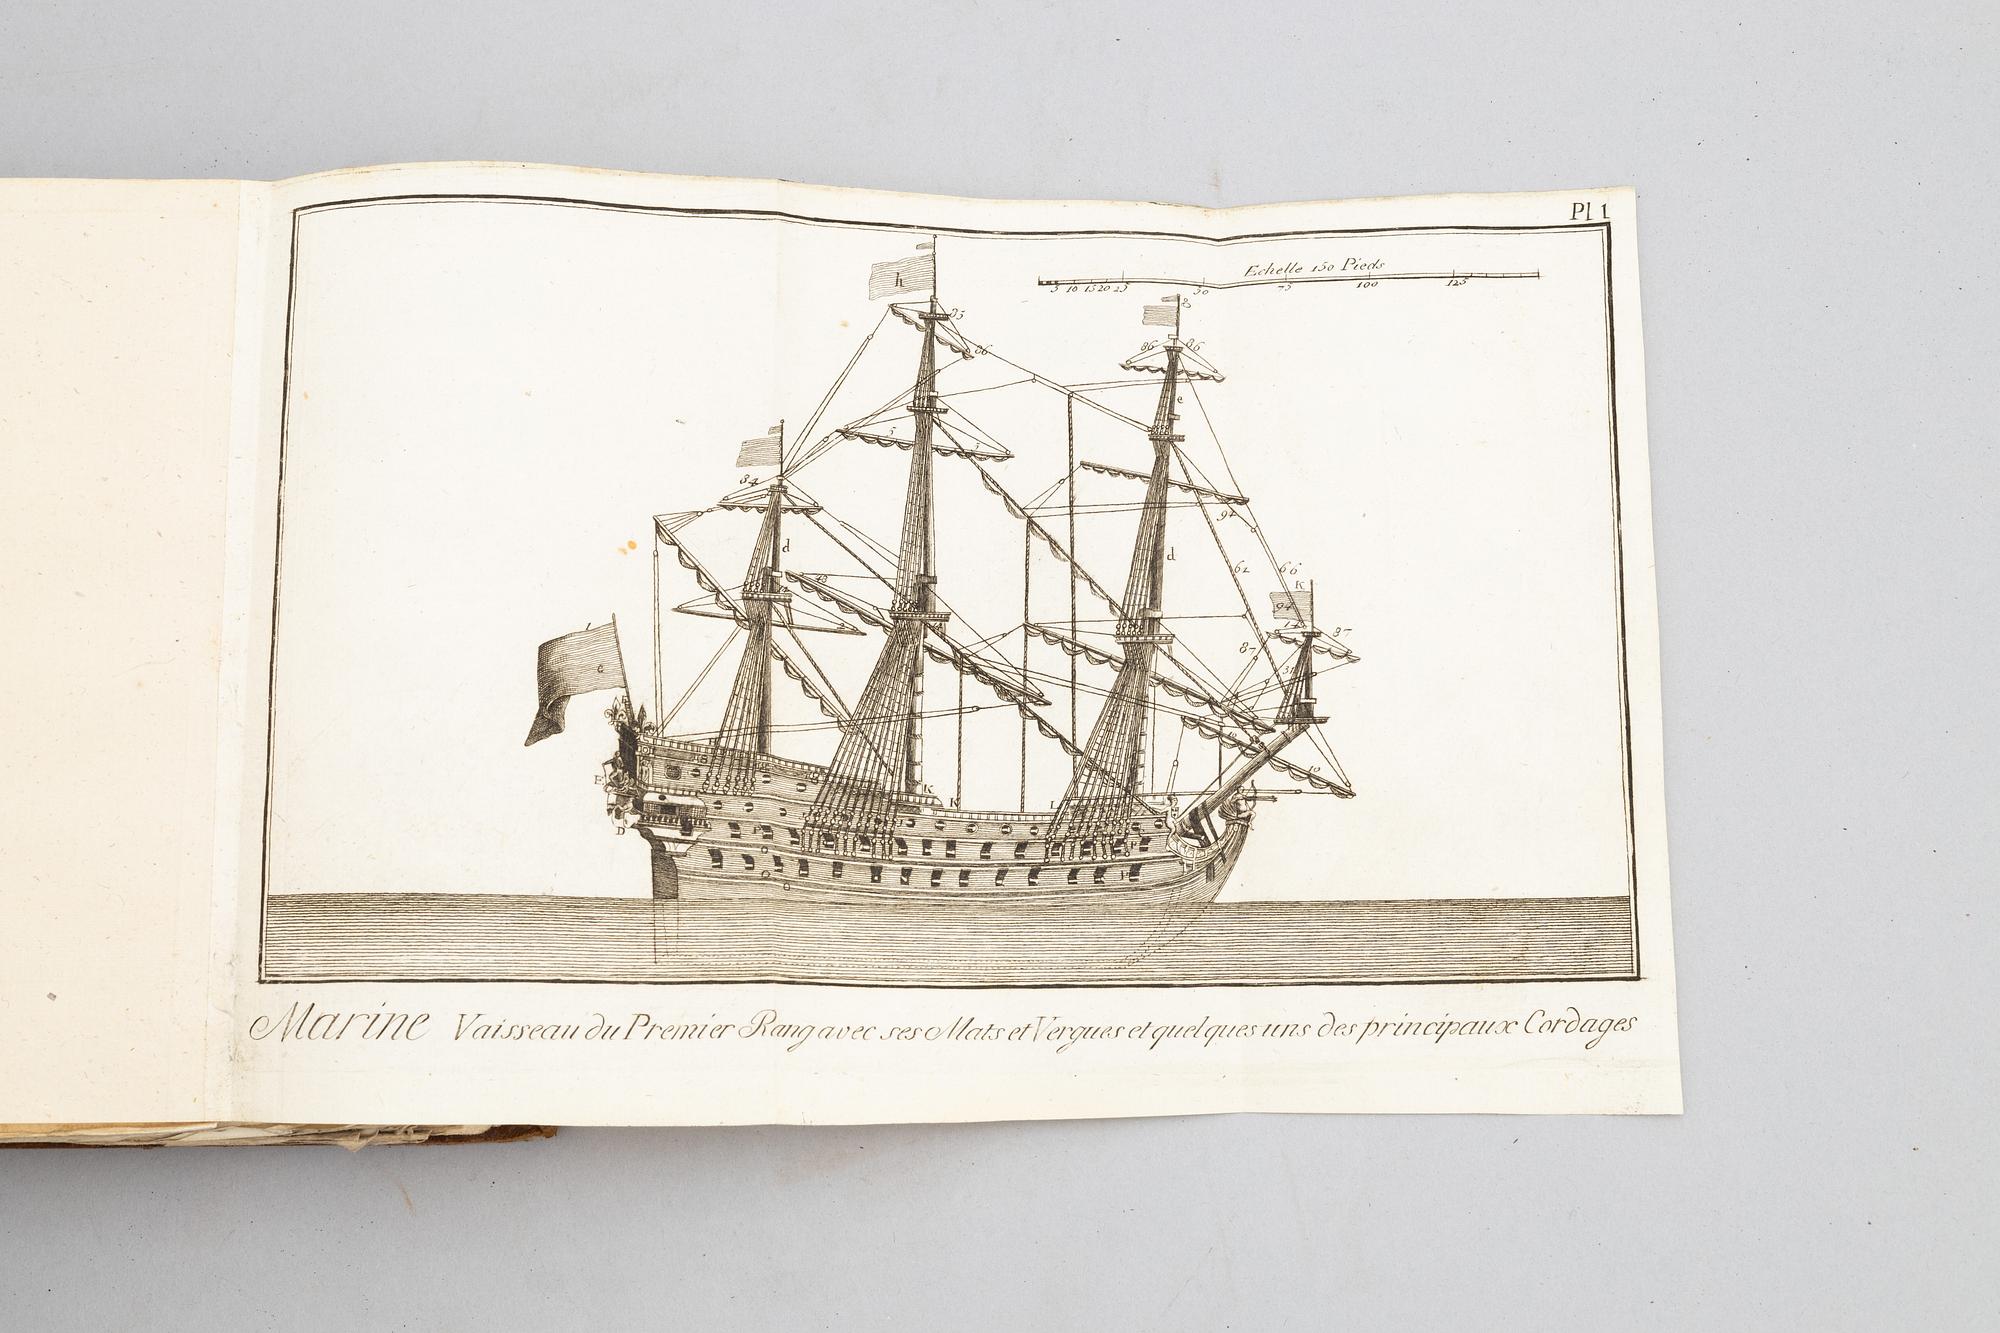 Pl 1
Echelle 150 Pieds
5 10 15 20 25 50 75 100 125
h
35
86
86 86
e
5 5
84
92
d
d
62 66
K
94
87
87
e
10
E
K K L
D
Marine Vaisseau du Premier Rang avec ses Mats et Vergues et quelques uns des principaux Cordages